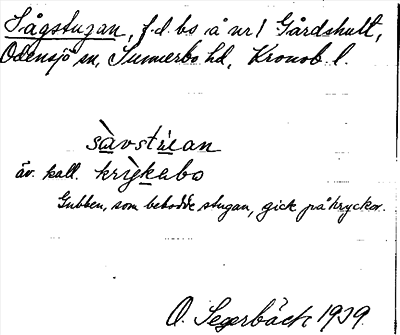 Sågstugan, f.d. bs å nr 1 Gårdshult,
Odensjö sn, Sunnerbo hd, Kronob. l.
sàvstúan
äv. kall. krỳkabo
Gubben, som bebodde stugan, gick på kryckor.
O. Segerbäck 1939.